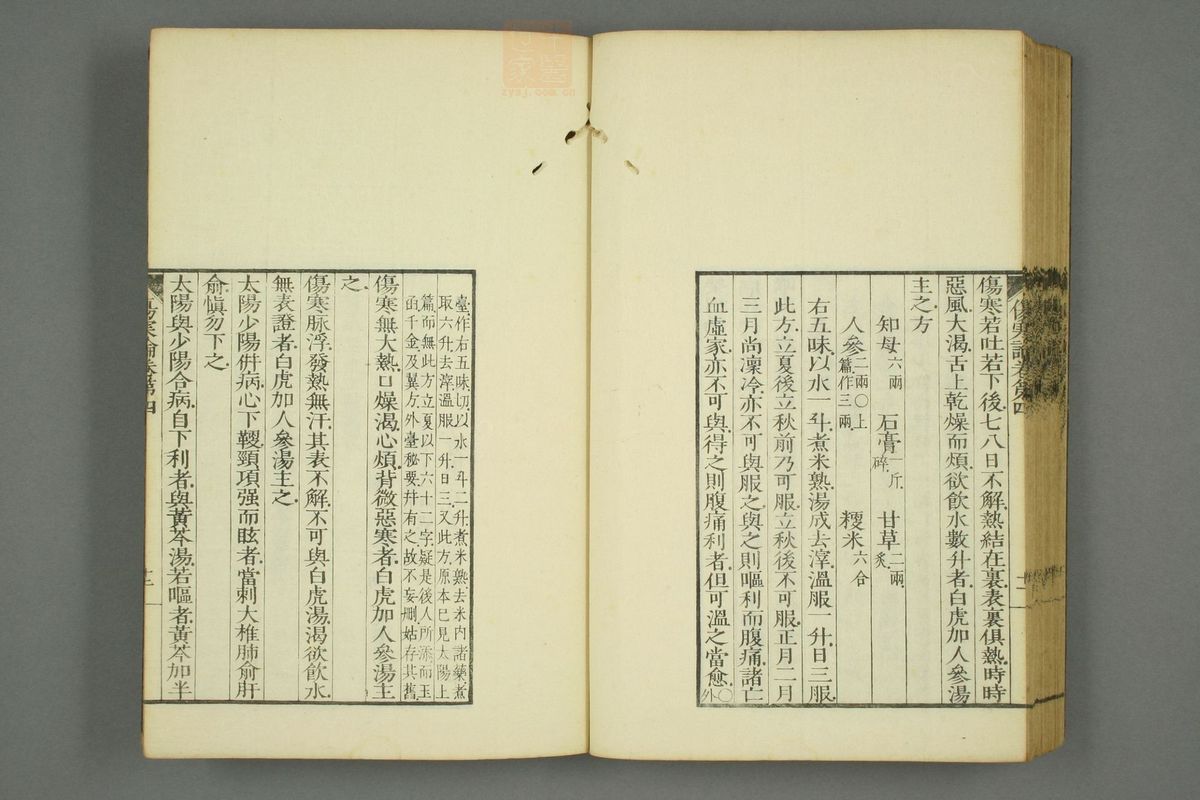 傷寒若吐若下後七八日不解熱結在裏表裏俱熱時時
惡風大渴舌上乾燥而煩欲飲水數升者白虎加人參湯
主之方
知母六兩 石膏一斤碎 甘草二兩炙
人參二兩○上篇作三兩 粳米六合
右五味以水一斗煮米熟湯成去滓溫服一升日三服
此方立夏後立秋前乃可服立秋後不可服正月二月
三月尚凜冷亦不可與服之與之則嘔利而腹痛諸亡
血虛家亦不可與得之則腹痛利者但可溫之當愈○外
臺作右五味切以水一斗二升煮米熟去米內諸藥煮
取六升去滓溫服一升日三又此方原本已見太陽上
篇而無此方立夏以下六十二字疑是後人所添而玉
函千金及翼方外臺秘要幷有之故不妄刪姑存其舊
傷寒無大熱口燥渴心煩背微惡寒者白虎加人參湯主
之
傷寒脉浮發熱無汗其表不解不可與白虎湯渴欲飲水
無表證者白虎加人參湯主之
太陽少陽倂病心下鞕頸項强而眩者當刺大椎肺俞肝
俞愼勿下之
太陽與少陽合病自下利者與黃芩湯若嘔者黃芩加半
傷寒論卷第四